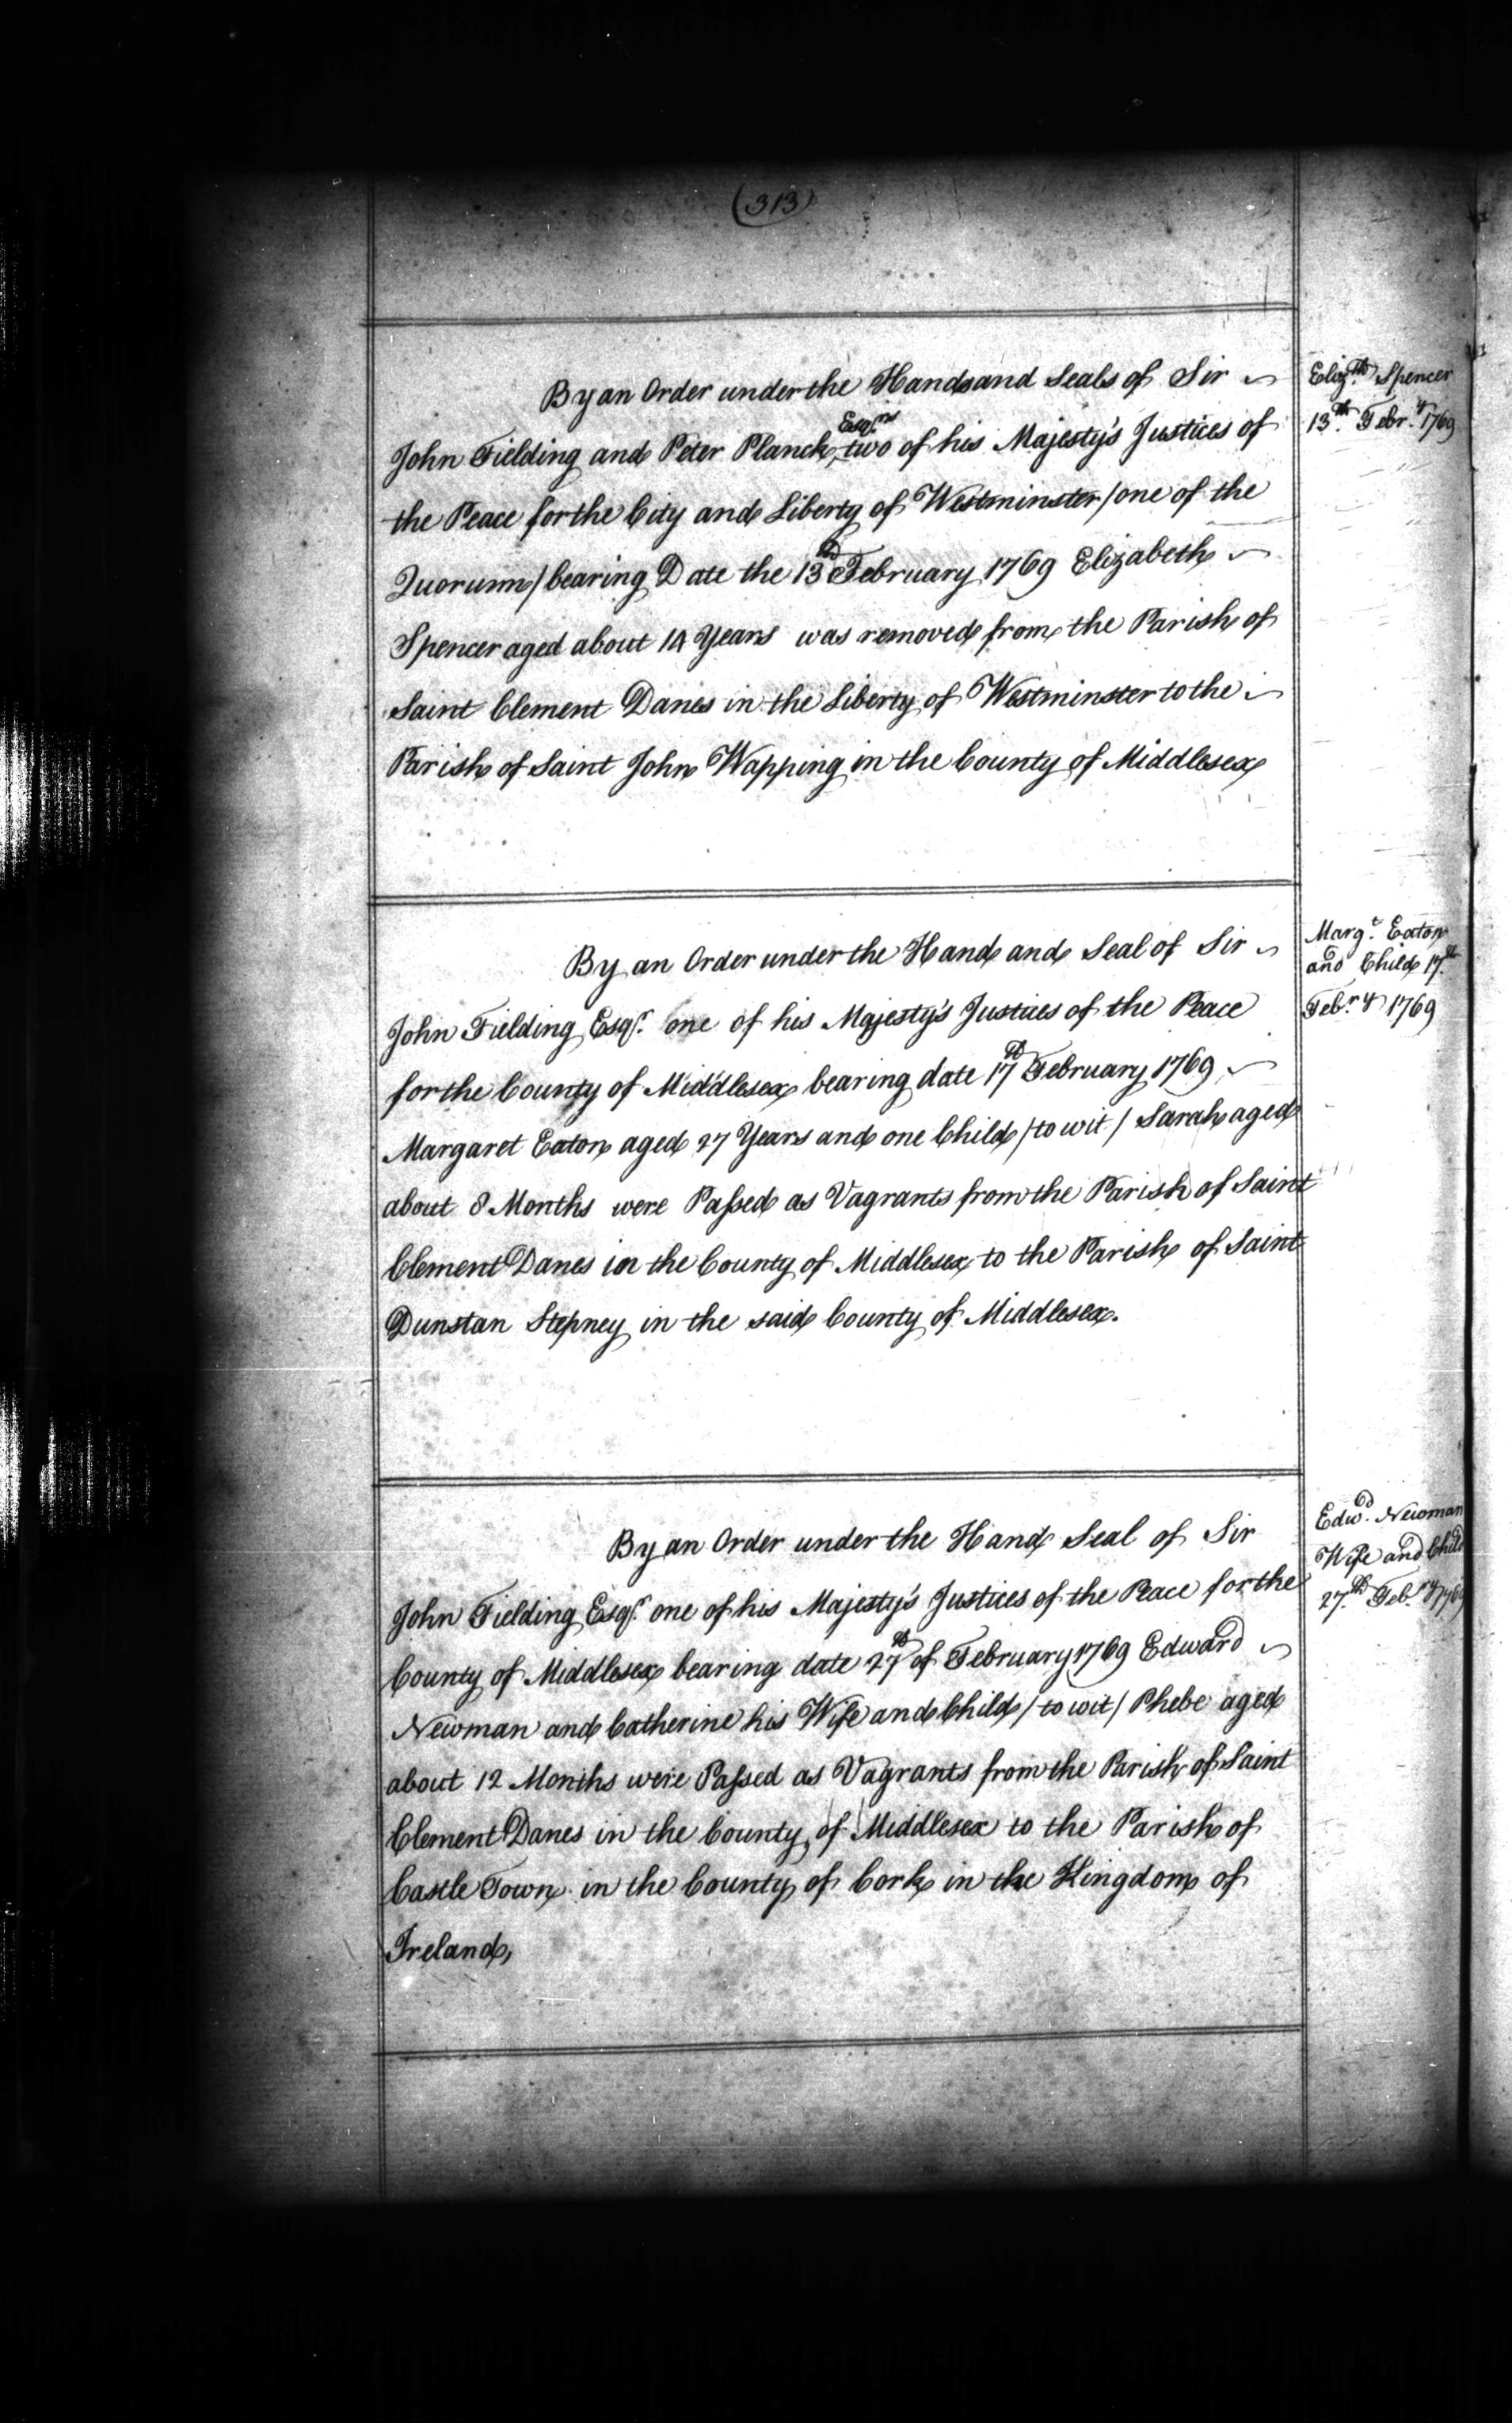 (313)
By an Order under the Hands and Seals of Sir
John Fielding and Peter Planck Esqrs two of his Majesty's Justices of
the Peace for the City and Liberty of Westminster / one of the
Quorum / bearing Date the 13th February 1769 Elizabeth
Spencer aged about 14 Years was removed from the Parish of
Saint Clement Danes in the Liberty of Westminster to the
Parish of Saint John Wapping in the County of Middlesex
Elizth. Spencer
13th. Febry. 1769
By an Order under the Hand and Seal of Sir
John Fielding Esqr. one of his Majesty's Justices of the Peace
for the County of Middlesex bearing date 17th February 1769
Margaret Eaton aged 27 Years and one Child / to wit / Sarah aged
about 8 Months were Passed as Vagrants from the Parish of Saint
Clement Danes in the County of Middlesex to the Parish of Saint
Dunstan Stepney in the said County of Middlesex.
Margt. Eaton
and Child 17th.
Febry. 1769
By an Order under the Hand Seal of Sir
John Fielding Esqr. one of his Majesty's Justices of the Peace for the
County of Middlesex bearing date 27th of February 1769 Edward
Newman and Catherine his Wife and Child / to wit / Phebe aged
about 12 Months were Passed as Vagrants from the Parish of Saint
Clement Danes in the County of Middlesex to the Parish of
Castle Town in the County of Cork in the Kingdom of
Ireland,
Edwd. Newman
Wife and Child
27th. Febry. 1769